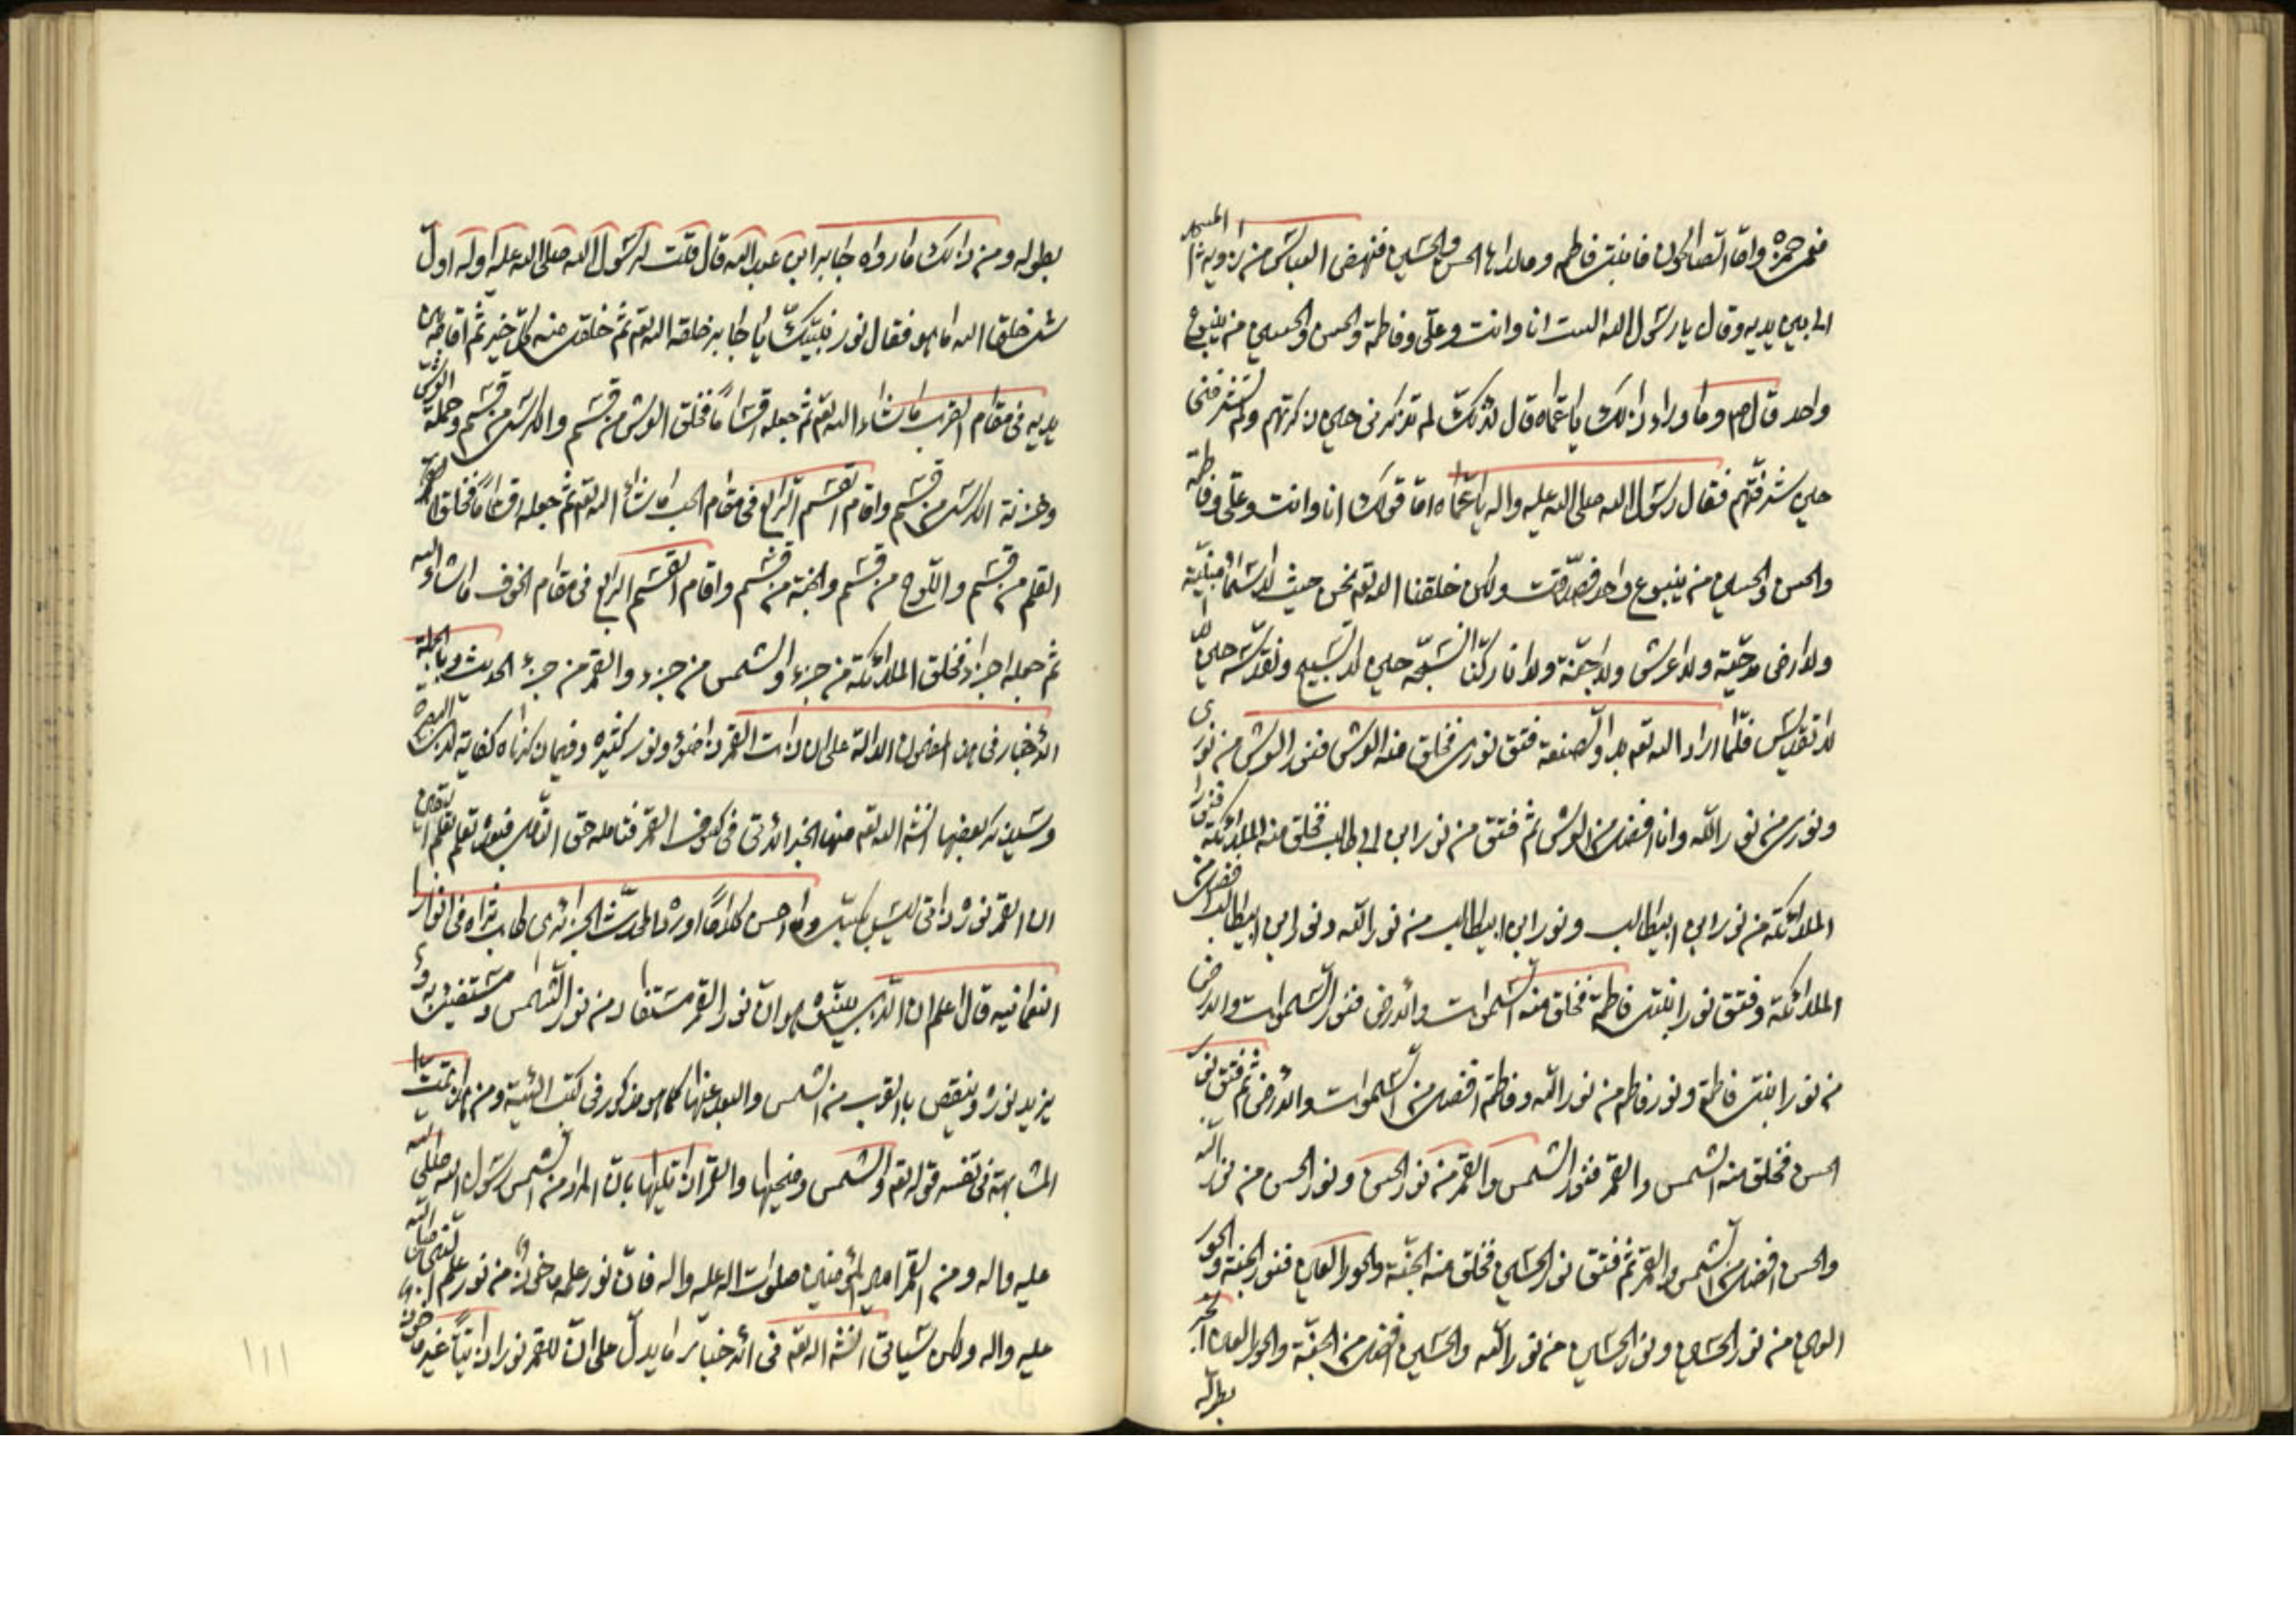 فعمي حمزة واما الصالحون فابنتي فاطمه وولداها الحسن والحسين فنهض العباس من زاوية المسجد
الى بين يديه وقال يا رسول الله الست انا وانت وعلى وفاطمة والحسن والحسين من ينبوع
واحد قال ص وما وراء ذلك يا عماه قال لانك لم تذكرنى حين ذكرتهم ولم تشرفنى
حين شرفتهم فقال رسول الله صلى الله عليه واله يا عماه اما قولك انا وانت وعلى وفاطمة
والحسن والحسين من ينبوع واحد فصدقت ولكن خلقنا الله تعه نحن حيث لا سماء مبنية
ولا ارض مدحية ولا عرش ولا جنة ولا نار كنا نسبحه حين لا تسبيح ونقدسه حين
لا تقديس فلما اراد الله تعه بدأ الصنعة فتق نورى فخلق منه العرش فنور العرش من نورى
ونورى من نور الله وانا افضل من العرش ثم فتق من نور ابن ابى طالب فخلق منه الملائكة فنور
الملائكة من نور ابن ابيطالب ونور ابن ابيطالب من نور الله ونور ابن ابيطالب افضل من
الملائكة وفتق نور ابنتى فاطمة فخلق منه السموات والارض فنور السموات والارض
من نور ابنتى فاطمة ونور فاطمه من نور الله وفاطمة افضل من السموات والارض ثم فتق نور
الحسن فخلق منه الشمس والقمر فنور الشمس والقمر من نور الحسن ونور الحسن من نور الله
والحسن افضل من الشمس والقمر ثم فتق نور الحسين فخلق منه الجنة والحور العين فنور الجنة والحور
العين من نور الحسين ونور الحسين من نور الله والحسين افضل من الجنة والحور العين
بطوله
بطوله ومن ذلك ما رواه جابر ابن عبد الله قال قلت لرسول الله صلى الله عليه واله اول
شئ خلق الله ما هو فقال نور نبيك يا جابر خلقه الله تعه ثم خلق منه كل خير ثم اقامه بين
يديه فى مقام القرب ما شاء الله تعه ثم جعله اقساما فخلق العرش من قسم والكرسى من قسم وحملة العرش
وخزنة الكرسى من قسم واقام القسم الرابع فى مقام الحب ما شاء الله تعه ثم جعله اقساما فخلق
القلم من قسم واللوح من قسم والجنة من قسم واقام القسم الرابع فى مقام الخوف ما شاء الله
ثم جعله اجزاء فخلق الملائكة من جزء والشمس من جزء والقمر من جزء الحديث وبالجملة
الاخبار فى هذا المضمون الدالة على ان ذات القمر ذا ضوء ونور كثيره وفيما ذكرناه كفاية
وسنذكر بعضها انشه الله تعه منها الخبر الاتى فى كسوف القمر فتامله حق التامل فبعده تعلم
ان القمر نوره ذاتى ليس بمكتسب وما احسن كلاما اورده المحدث الجزائرى طاب ثراه فى انوار
النعمانيه قال اعلم ان الذى بينوه هو ان نور القمر مستفاد من نور الشمس ومستضئ به و
يزيد نوره وينقص بالقرب من الشمس والبعد عنها كما هو مذكور فى كتب الهيئة ومن هنا تمت
المشابهة فى تفسير قوله تعه والشمس وضحيها والقمر اذا تليها بان المراد من الشمس رسول الله صلى الله
عليه واله ومن القمر امير المؤمنين صلوات الله عليه واله فان نور علمه ماخوذ من نور علم النبى صلى الله
عليه واله ولكن سياتى انشه الله تعه فى الاخبار ما يدل على ان للقمر نورا ذاتيا غير ماخوذ
١١١